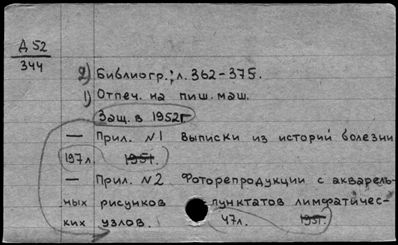 Д 52
344
2) Библиогр.: л. 362-375.
1) Отпеч. на пиш. маш.
Защ. в 1952г
— Прил. №1 Выписки из историй болезни
197л. 1951.
— Прил. №2. Фоторепродукции с акварель-
ных рисунков пунктатов лимфатичес-
ких узлов. 47л. 1951.